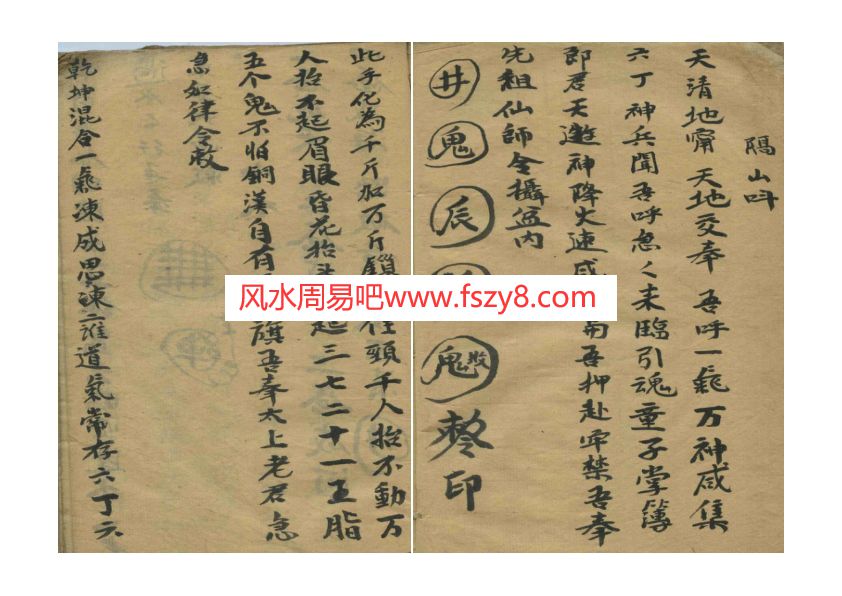 隔山呌
天清地寧 天地交奉 吾呼一氣万神咸集
六丁神兵聞吾呼急々来臨引魂童子掌簿
郎君天遊神降火速 南吾押赴牢禁吾奉
先祖仙師令攝盆内
井
鬼
辰
鬼敕
印
此手化為千斤加万斤鎖 住頸千人抬不動万
人抬不起眉眼昏花抬头 起三七二十一王脂
五个鬼不怕銅漢自有 旗吾奉太上老君急
急如律令敕
乾坤混合一氣凍成思凍二誰道氣常存六丁六
风水周易吧www.fszy8.com